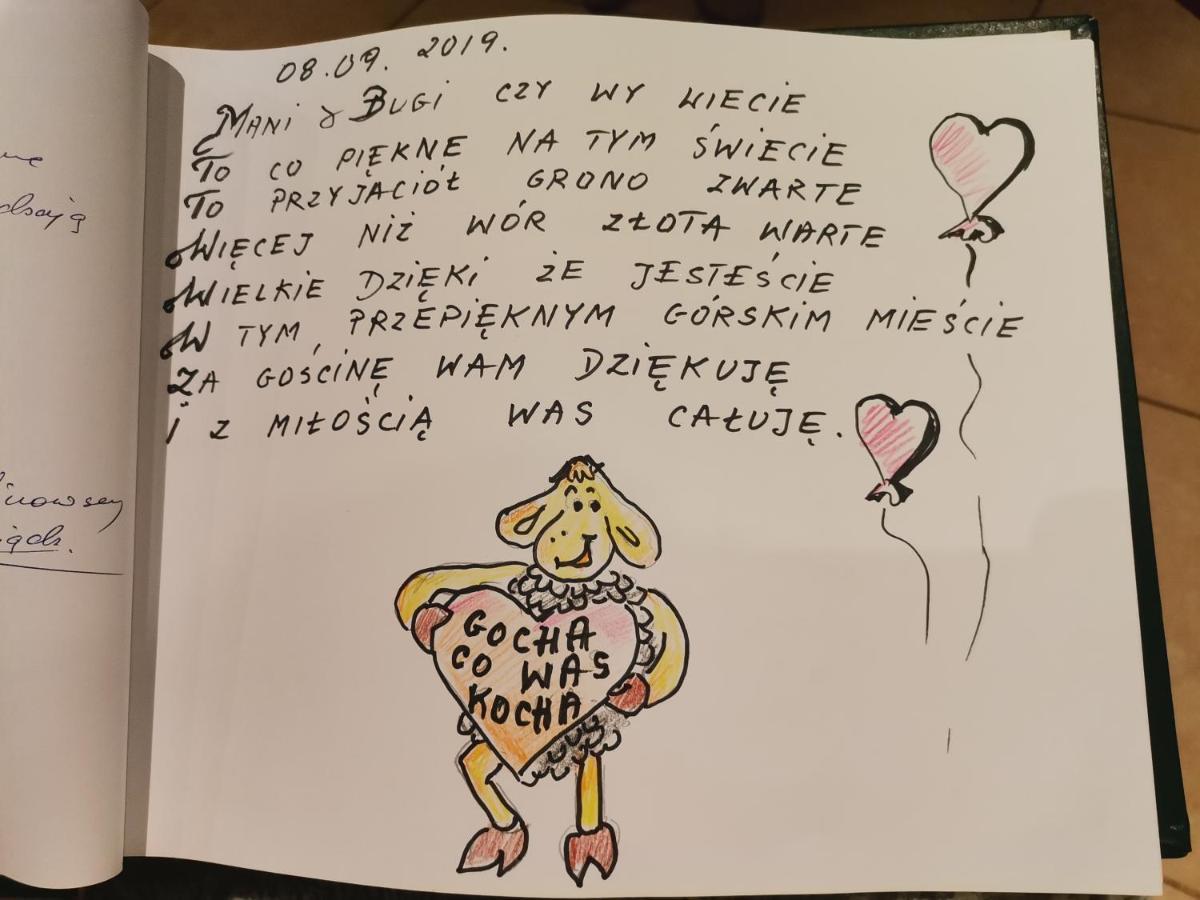 ne
dzają
inowscy
iądz.
08.09. 2019.
MANI & BUGI CZY WY WIECIE
TO CO PIĘKNE NA TYM ŚWIECIE
TO PRZYJACIÓŁ GRONO ZWARTE
WIĘCEJ NIŻ WÓR ZŁOTA WARTE
WIELKIE DZIĘKI ŻE JESTEŚCIE
W TYM PRZEPIĘKNYM GÓRSKIM MIEŚCIE
ZA GOŚCINĘ WAM DZIĘKUJĘ
I Z MIŁOŚCIĄ WAS CAŁUJĘ.
GOCHA
CO WAS
KOCHA